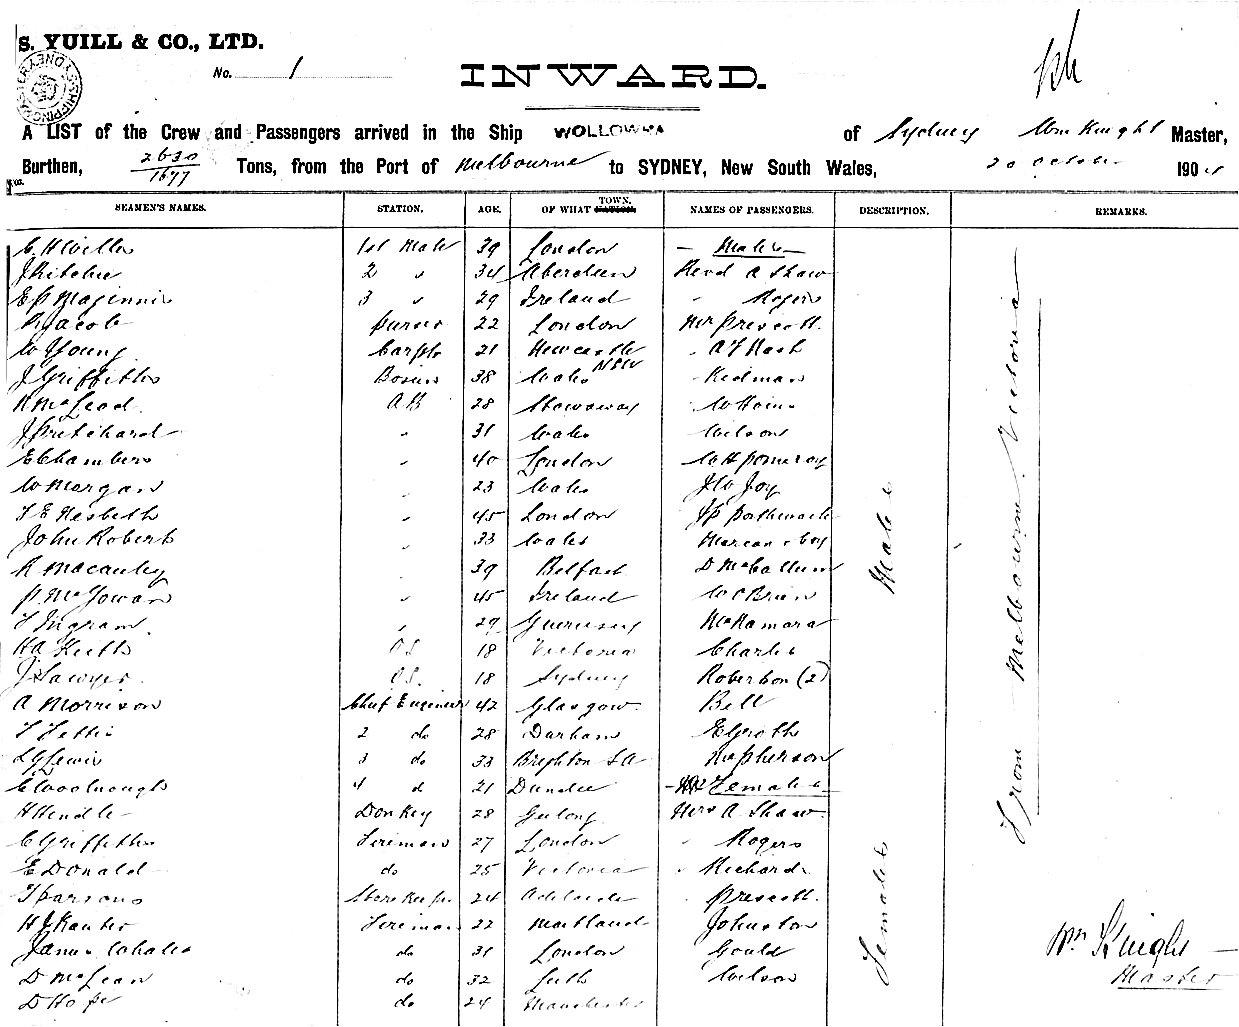 S. YUILL & CO., LTD.
No. 1
INWARD.
A LIST of the Crew and Passengers arrived in the Ship WOLLOWRA of Sydney Wm Knight Master,
Burthen, 2630/1677 Tons, from the Port of Melbourne to SYDNEY, New South Wales, 20 October 190
SEAMEN'S NAMES. STATION. AGE. OF WHAT NATION. TOWN. NAMES OF PASSENGERS. DESCRIPTION. REMARKS.
1st Mate 39 London - Males -
J Ritchie 2 " 34 Aberdeen Revd A Shaw
E P Maginnis 3 " 29 Ireland " Rogers
R Jacob purser 22 London Mr Prescott
W Young Carptr 21 Newcastle NSW " A F Nash
J Griffiths Bosun 38 Wales Redman
R McLeod AB 28 Stowaway
J Pritchard " 31 Wales Wilson
E Chambers " 40 London W H Pomeroy
W Morgan " 23 Wales J W Joy
T E Nesbeth " 45 London
John Roberts " 33 Wales
R Macauley " 39 Belfast D McCallum
P. McGowan " 45 Ireland W O'Brien
T Ingram " 29 Guernsey McNamara
H A Keith OS 18 Victoria Charles
J Sawyer OS. 18 Sydney Robertson (2)
A Morrison Chief Engineer 42 Glasgow Bell
2 do 28 Durham E Groth
L G Lewis 3 do 33 Brighton SA McPherson
C Woolnough 4 d 21 Dundee Females
H Hindle Donkey 28 Geelong Mrs A Shaw
C Griffiths Fireman 27 London " Rogers
E Donald do 25 Victoria " Richards
T Parsons Storekeeper 24 Adelaide " Prescott
Fireman 22 Maitland Johnston
James Whales do 31 London Gould
D McLean do 32 Leith Wilson
D Hope do 24 Manchester
Males
Females
From Melbourne Victoria
Wm Knight
Master